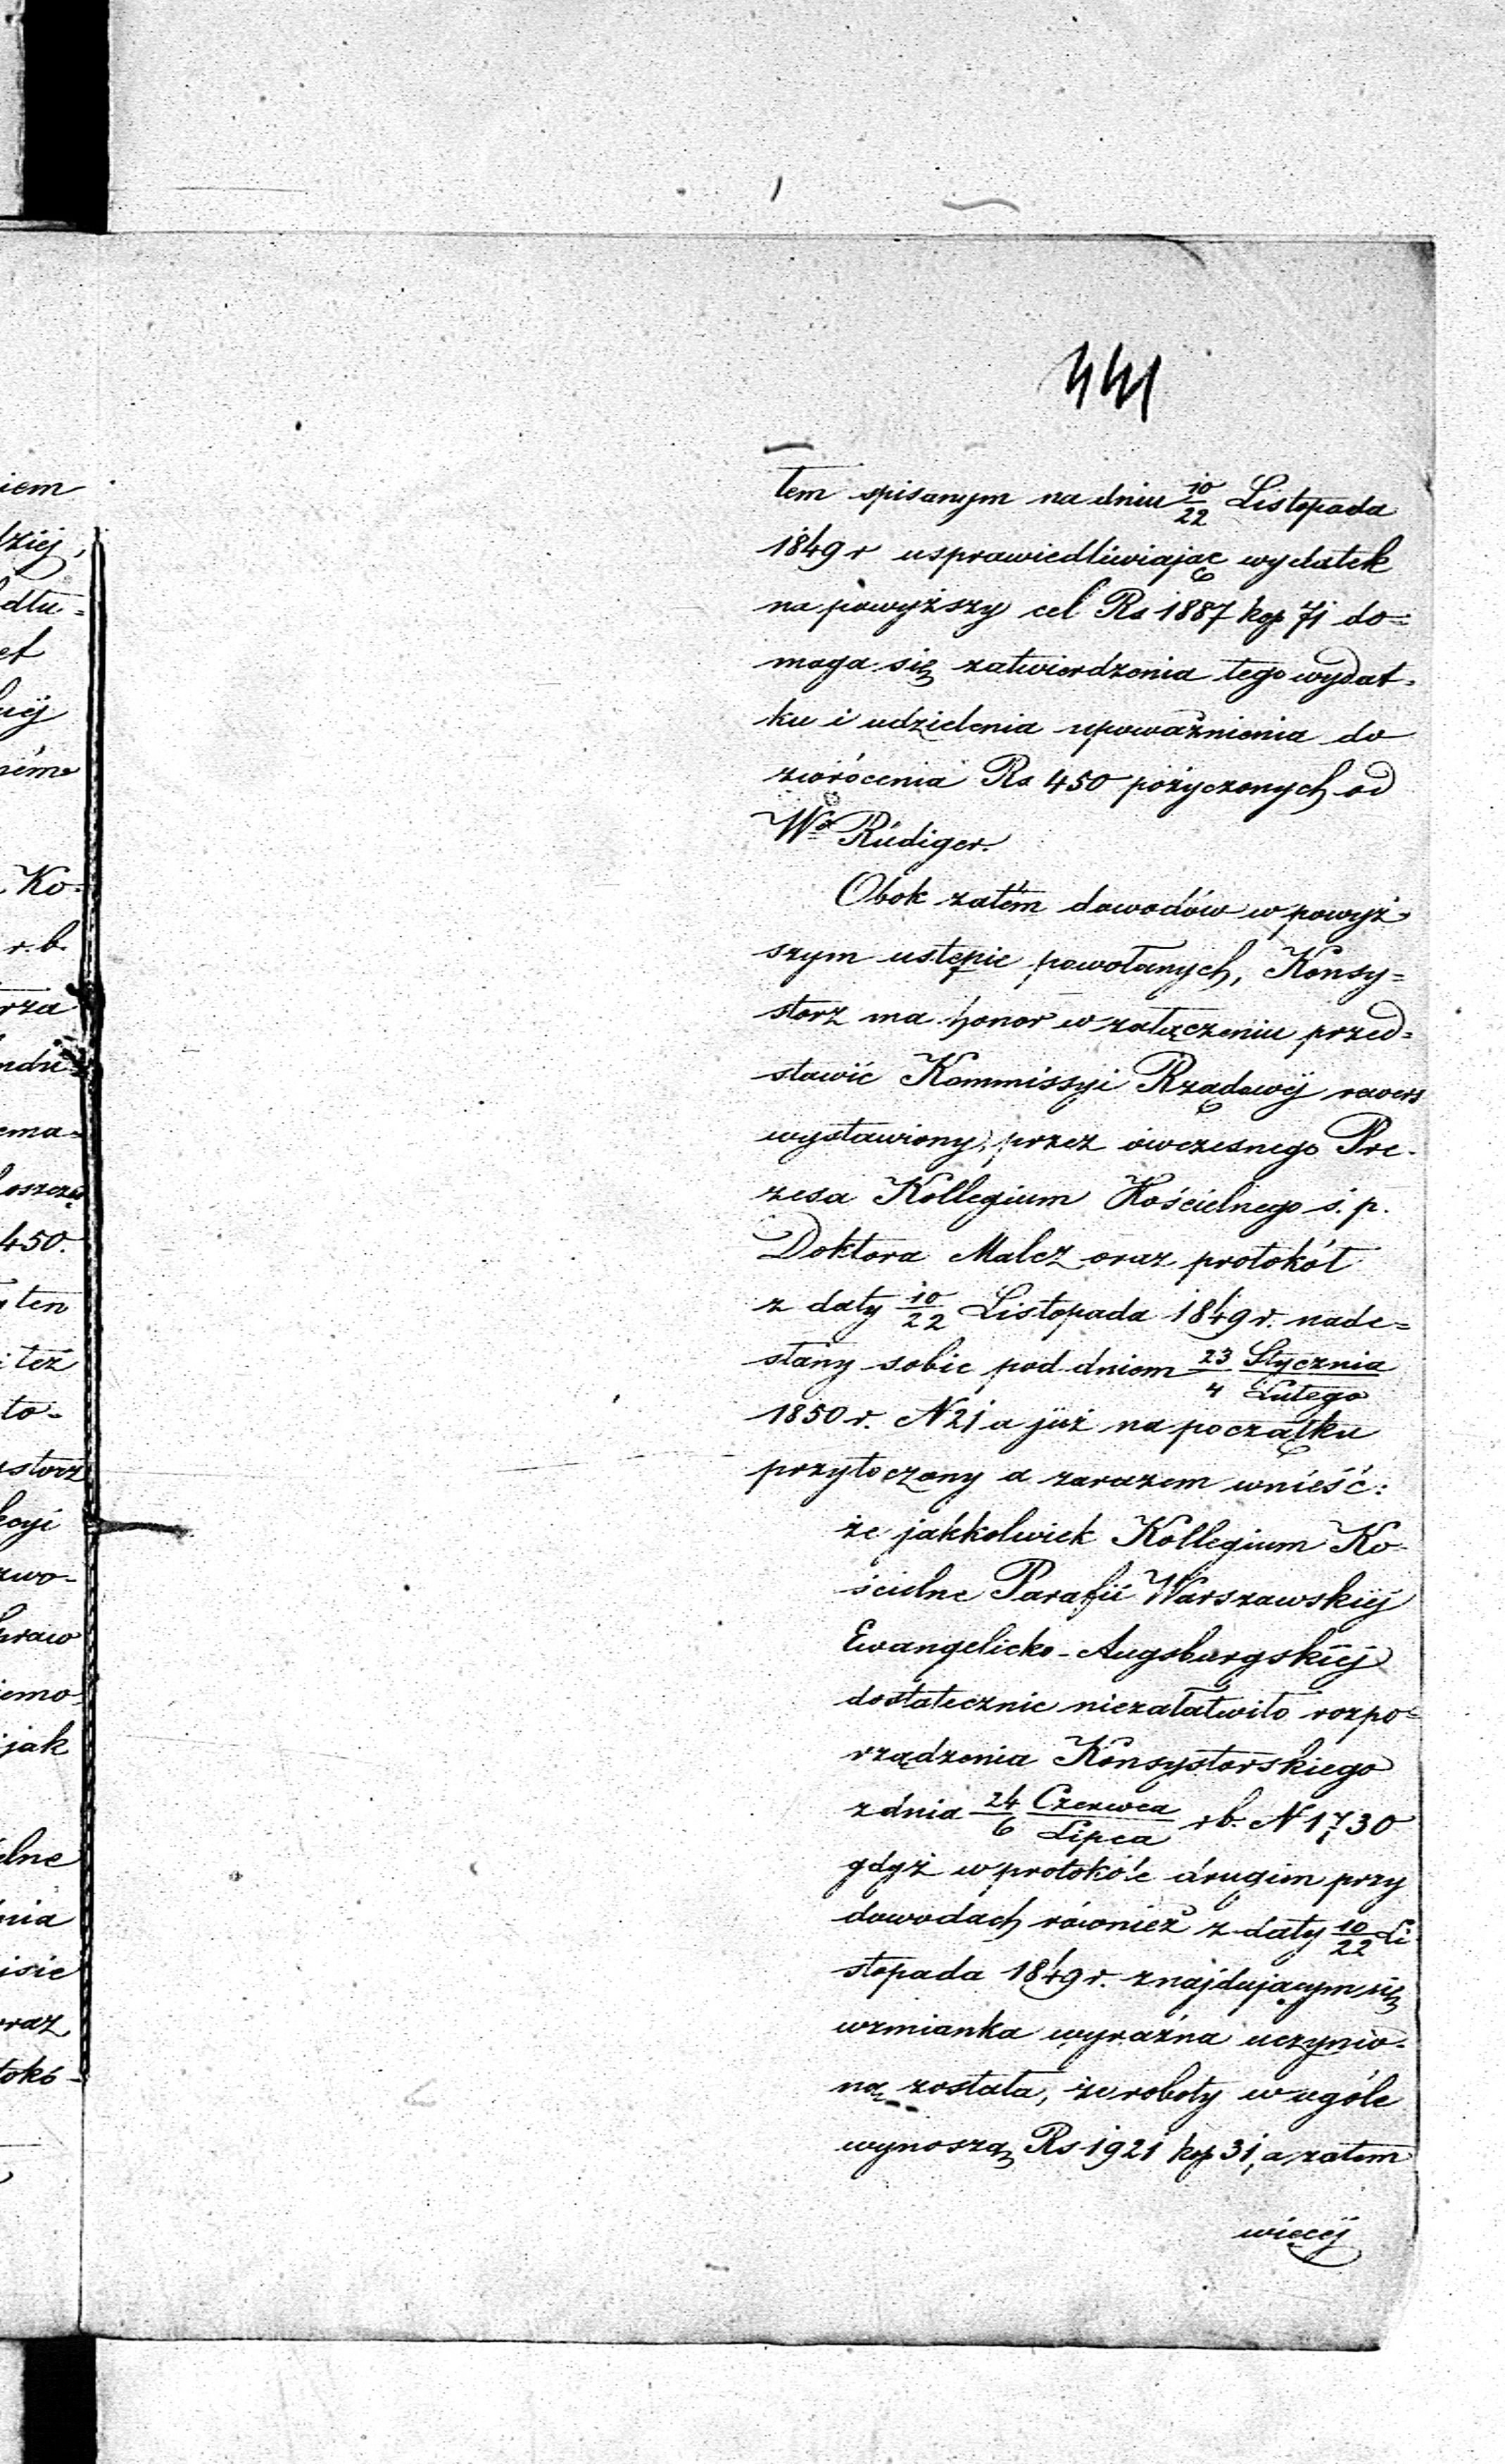 441
tem spisanym na dniu 10/22 Listopada
1849 r usprawiedliwiając wydatek
na powyższy cel Rs 1887 kop 71 do=
maga się zatwierdzenia tego wydat=
ku i udzielenia upoważnienia do
zwrócenia Rs 450 pożyczonych od
Wo Rüdiger.
Obok zatém dowodów w powyż
szym ustępie powołanych, Konsy=
storz ma honor w załączeniu przed=
stawić Kommissyi Rządowéj rewers
wystawiony, przez ówczesnego Pre-
zesa Kollegium Kościelnego ś. p.
Doktora Malcz oraz protokół
z daty 10/22 Listopada 1849 r. nade=
słany sobie pod dniem 23 Stycznia / 4 Lutego
1850 r. N 21 a już na początku
przytoczony a zarazem wnieść:
że jakkolwiek Kollegium Ko-
ścielne Parafii Warszawskiéj
Ewangelicko-Augsburgskiéj
dostatecznie niezałatwiło rozpo=
rządzenia Konsystorskiego
z dnia 24 Czerwca / 6 Lipca r b. N 1730
gdyż w protokóle drugim przy
dowodach również z daty 10/22 Li
stopada 1849 r. znajdującym się
wzmianka wyraźna uczynio-
ną została, że roboty w ogóle
wynoszą Rs 1921 kop 31, a zatem
więcéj
iem
dziej,
dłu=
ef
Ko-
r. b.
rza
ema-
450.
ten
też
to-
storz
zwo-
praw
iemo
jak
elne
nia
isie
oraz
tokó-